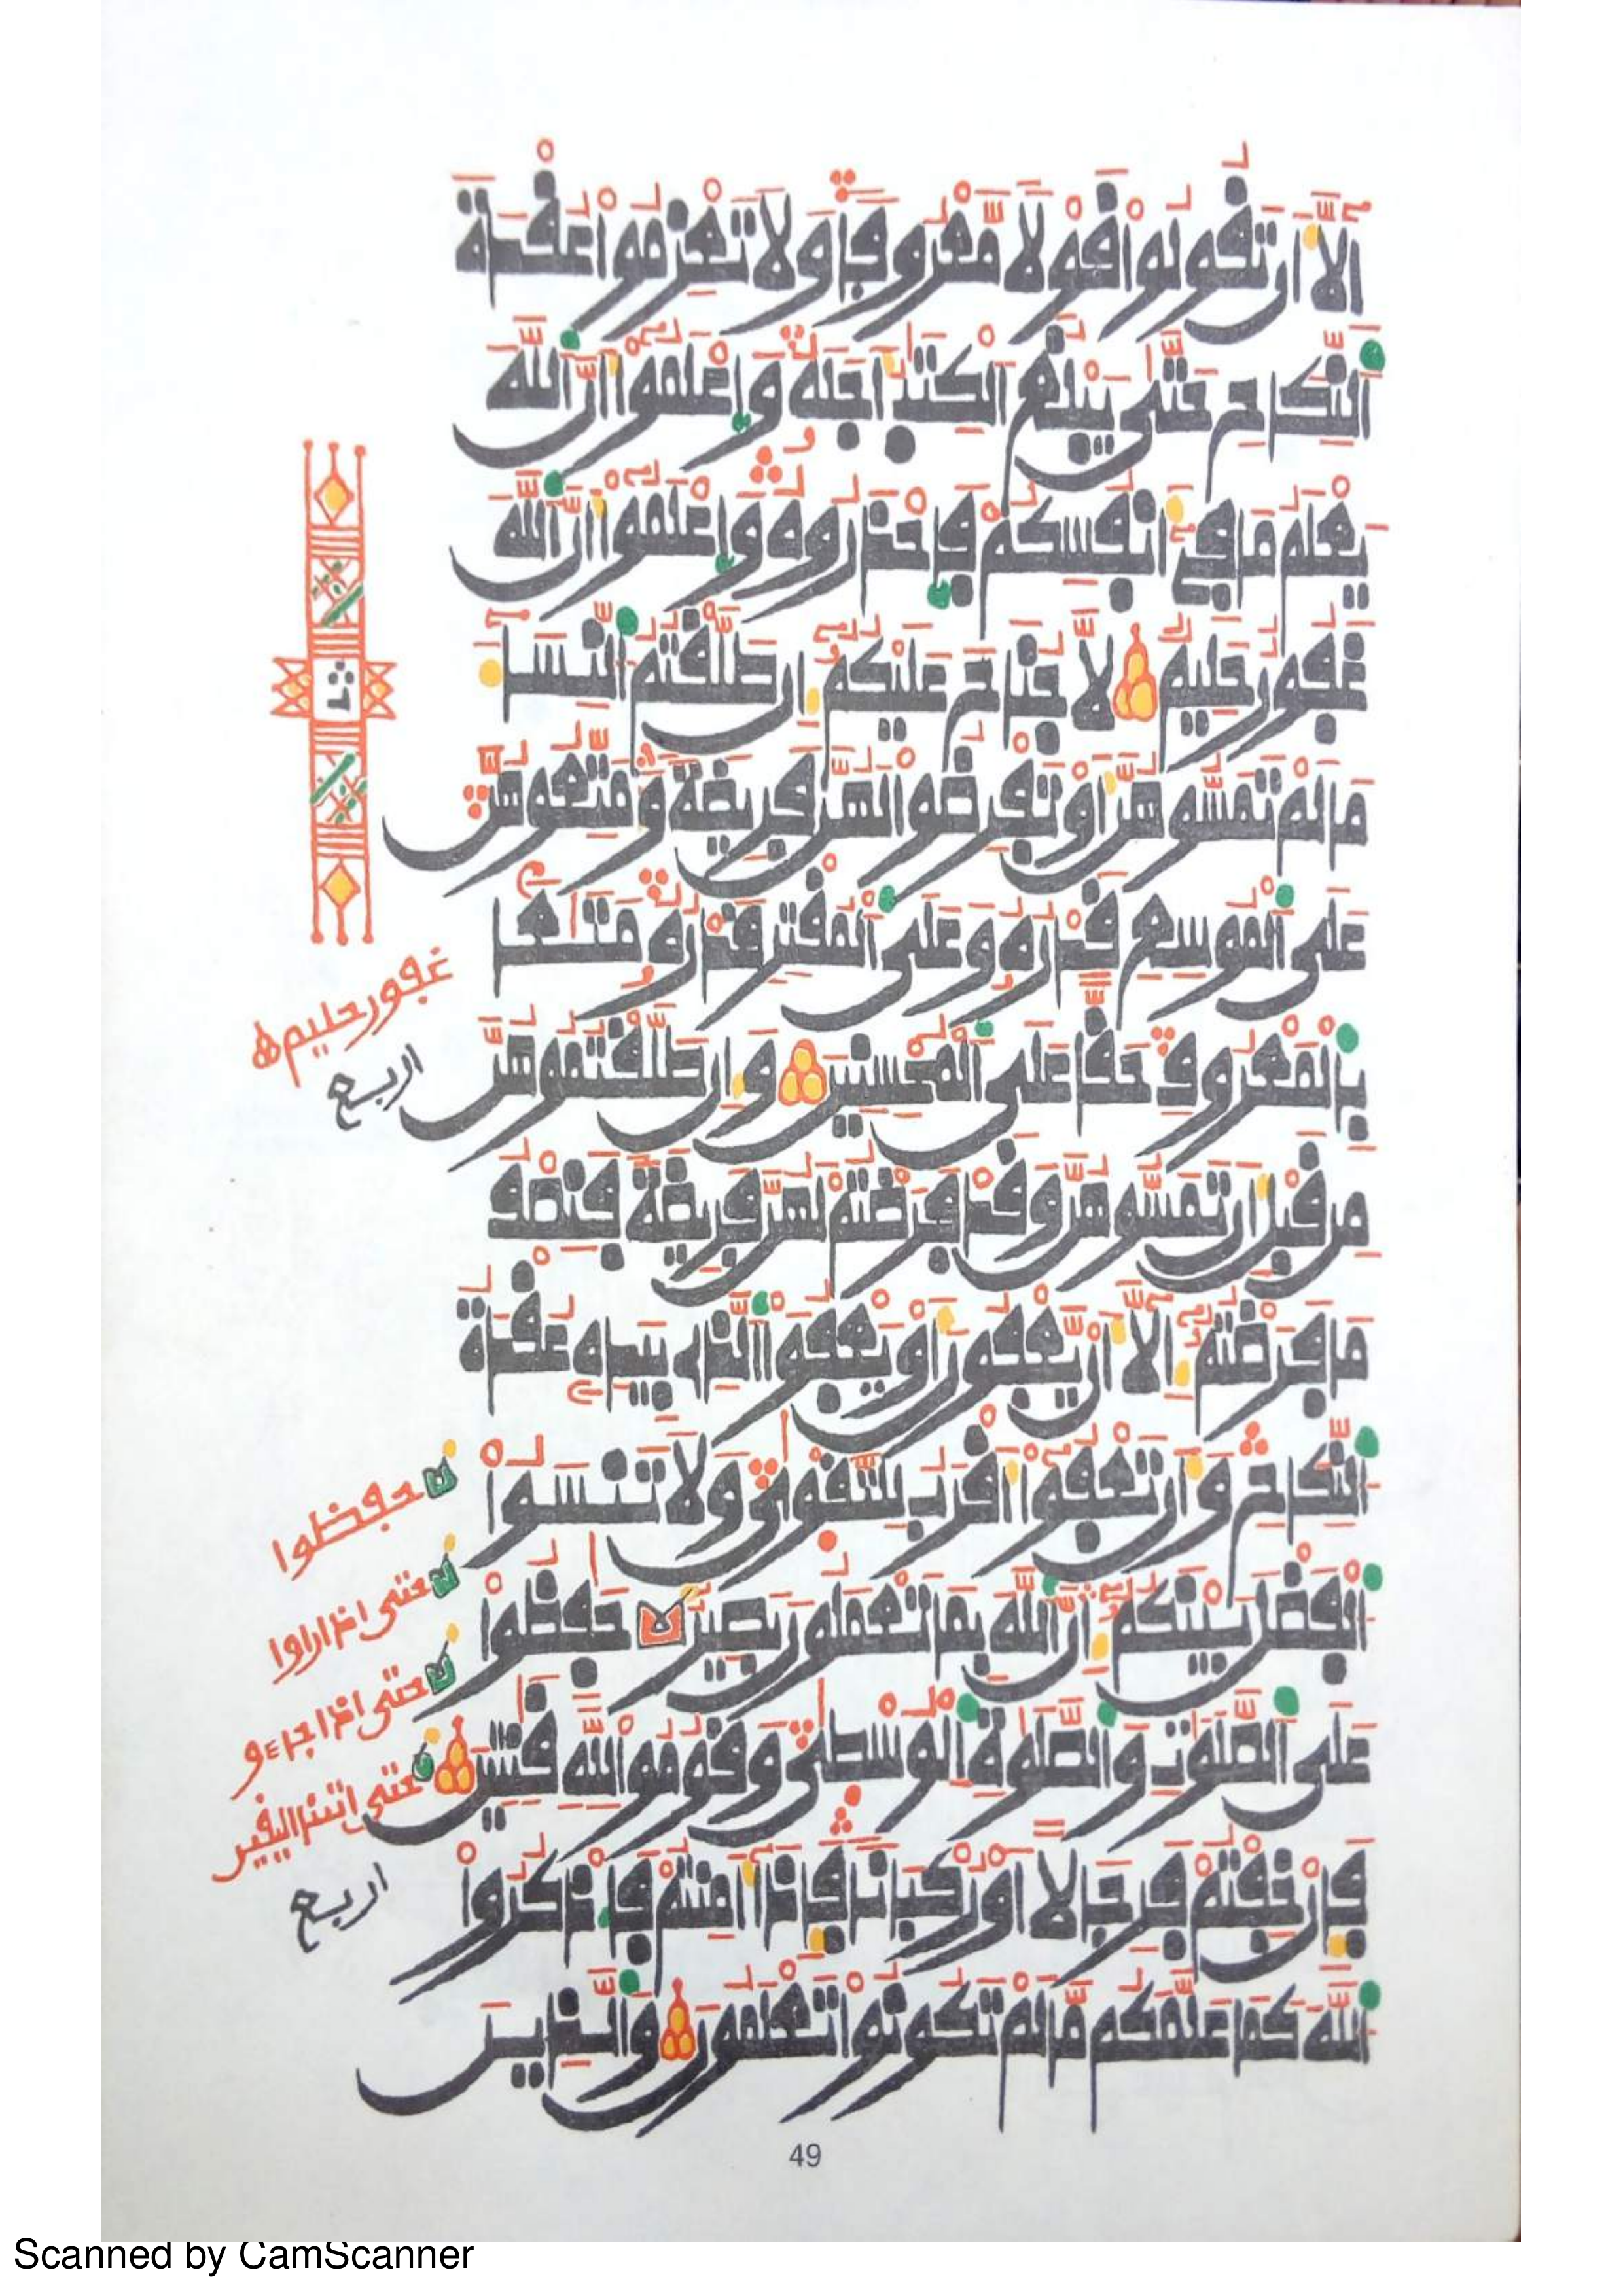 إِلَّا أَن تَقُولُوا قَوْلًا مَّعْرُوفًا وَلَا تَعْزِمُوا عُقْدَةَ
النِّكَاحِ حَتَّىٰ يَبْلُغَ الْكِتَٰبُ أَجَلَهُ وَاعْلَمُوا أَنَّ اللَّهَ
يَعْلَمُ مَا فِي أَنفُسِكُمْ فَاحْذَرُوهُ وَاعْلَمُوا أَنَّ اللَّهَ
غَفُورٌ حَلِيمٌ لَا جُنَاحَ عَلَيْكُمْ إِن طَلَّقْتُمُ النِّسَاءَ
مَا لَمْ تَمَسُّوهُنَّ أَوْ تَفْرِضُوا لَهُنَّ فَرِيضَةً وَمَتِّعُوهُنَّ
عَلَى الْمُوسِعِ قَدْرُهُ وَعَلَى الْمُقْتِرِ قَدْرُهُ مَتَٰعًا
بِالْمَعْرُوفِ حَقًّا عَلَى الْمُحْسِنِينَ وَإِن طَلَّقْتُمُوهُنَّ
مِن قَبْلِ أَن تَمَسُّوهُنَّ وَقَدْ فَرَضْتُمْ لَهُنَّ فَرِيضَةً فَنِصْفُ
مَا فَرَضْتُمْ إِلَّا أَن يَعْفُونَ أَوْ يَعْفُوَا الَّذِي بِيَدِهِ عُقْدَةُ
النِّكَاحِ وَأَن تَعْفُوا أَقْرَبُ لِلتَّقْوَىٰ وَلَا تَنسَوُا
الْفَضْلَ بَيْنَكُمْ إِنَّ اللَّهَ بِمَا تَعْمَلُونَ بَصِيرٌ حَٰفِظُوا
عَلَى الصَّلَوَٰتِ وَالصَّلَوٰةِ الْوُسْطَىٰ وَقُومُوا لِلَّهِ قَٰنِتِينَ
فَإِنْ خِفْتُمْ فَرِجَالًا أَوْ رُكْبَانًا فَإِذَا أَمِنتُمْ فَاذْكُرُوا
اللَّهَ كَمَا عَلَّمَكُم مَّا لَمْ تَكُونُوا تَعْلَمُونَ وَالَّذِينَ
غفور حليم
اربع
حفظوا
حتى اذا راوا
حتى اذا جاءو
حتى اتينا اليقين
اربع
49
Scanned by CamScanner